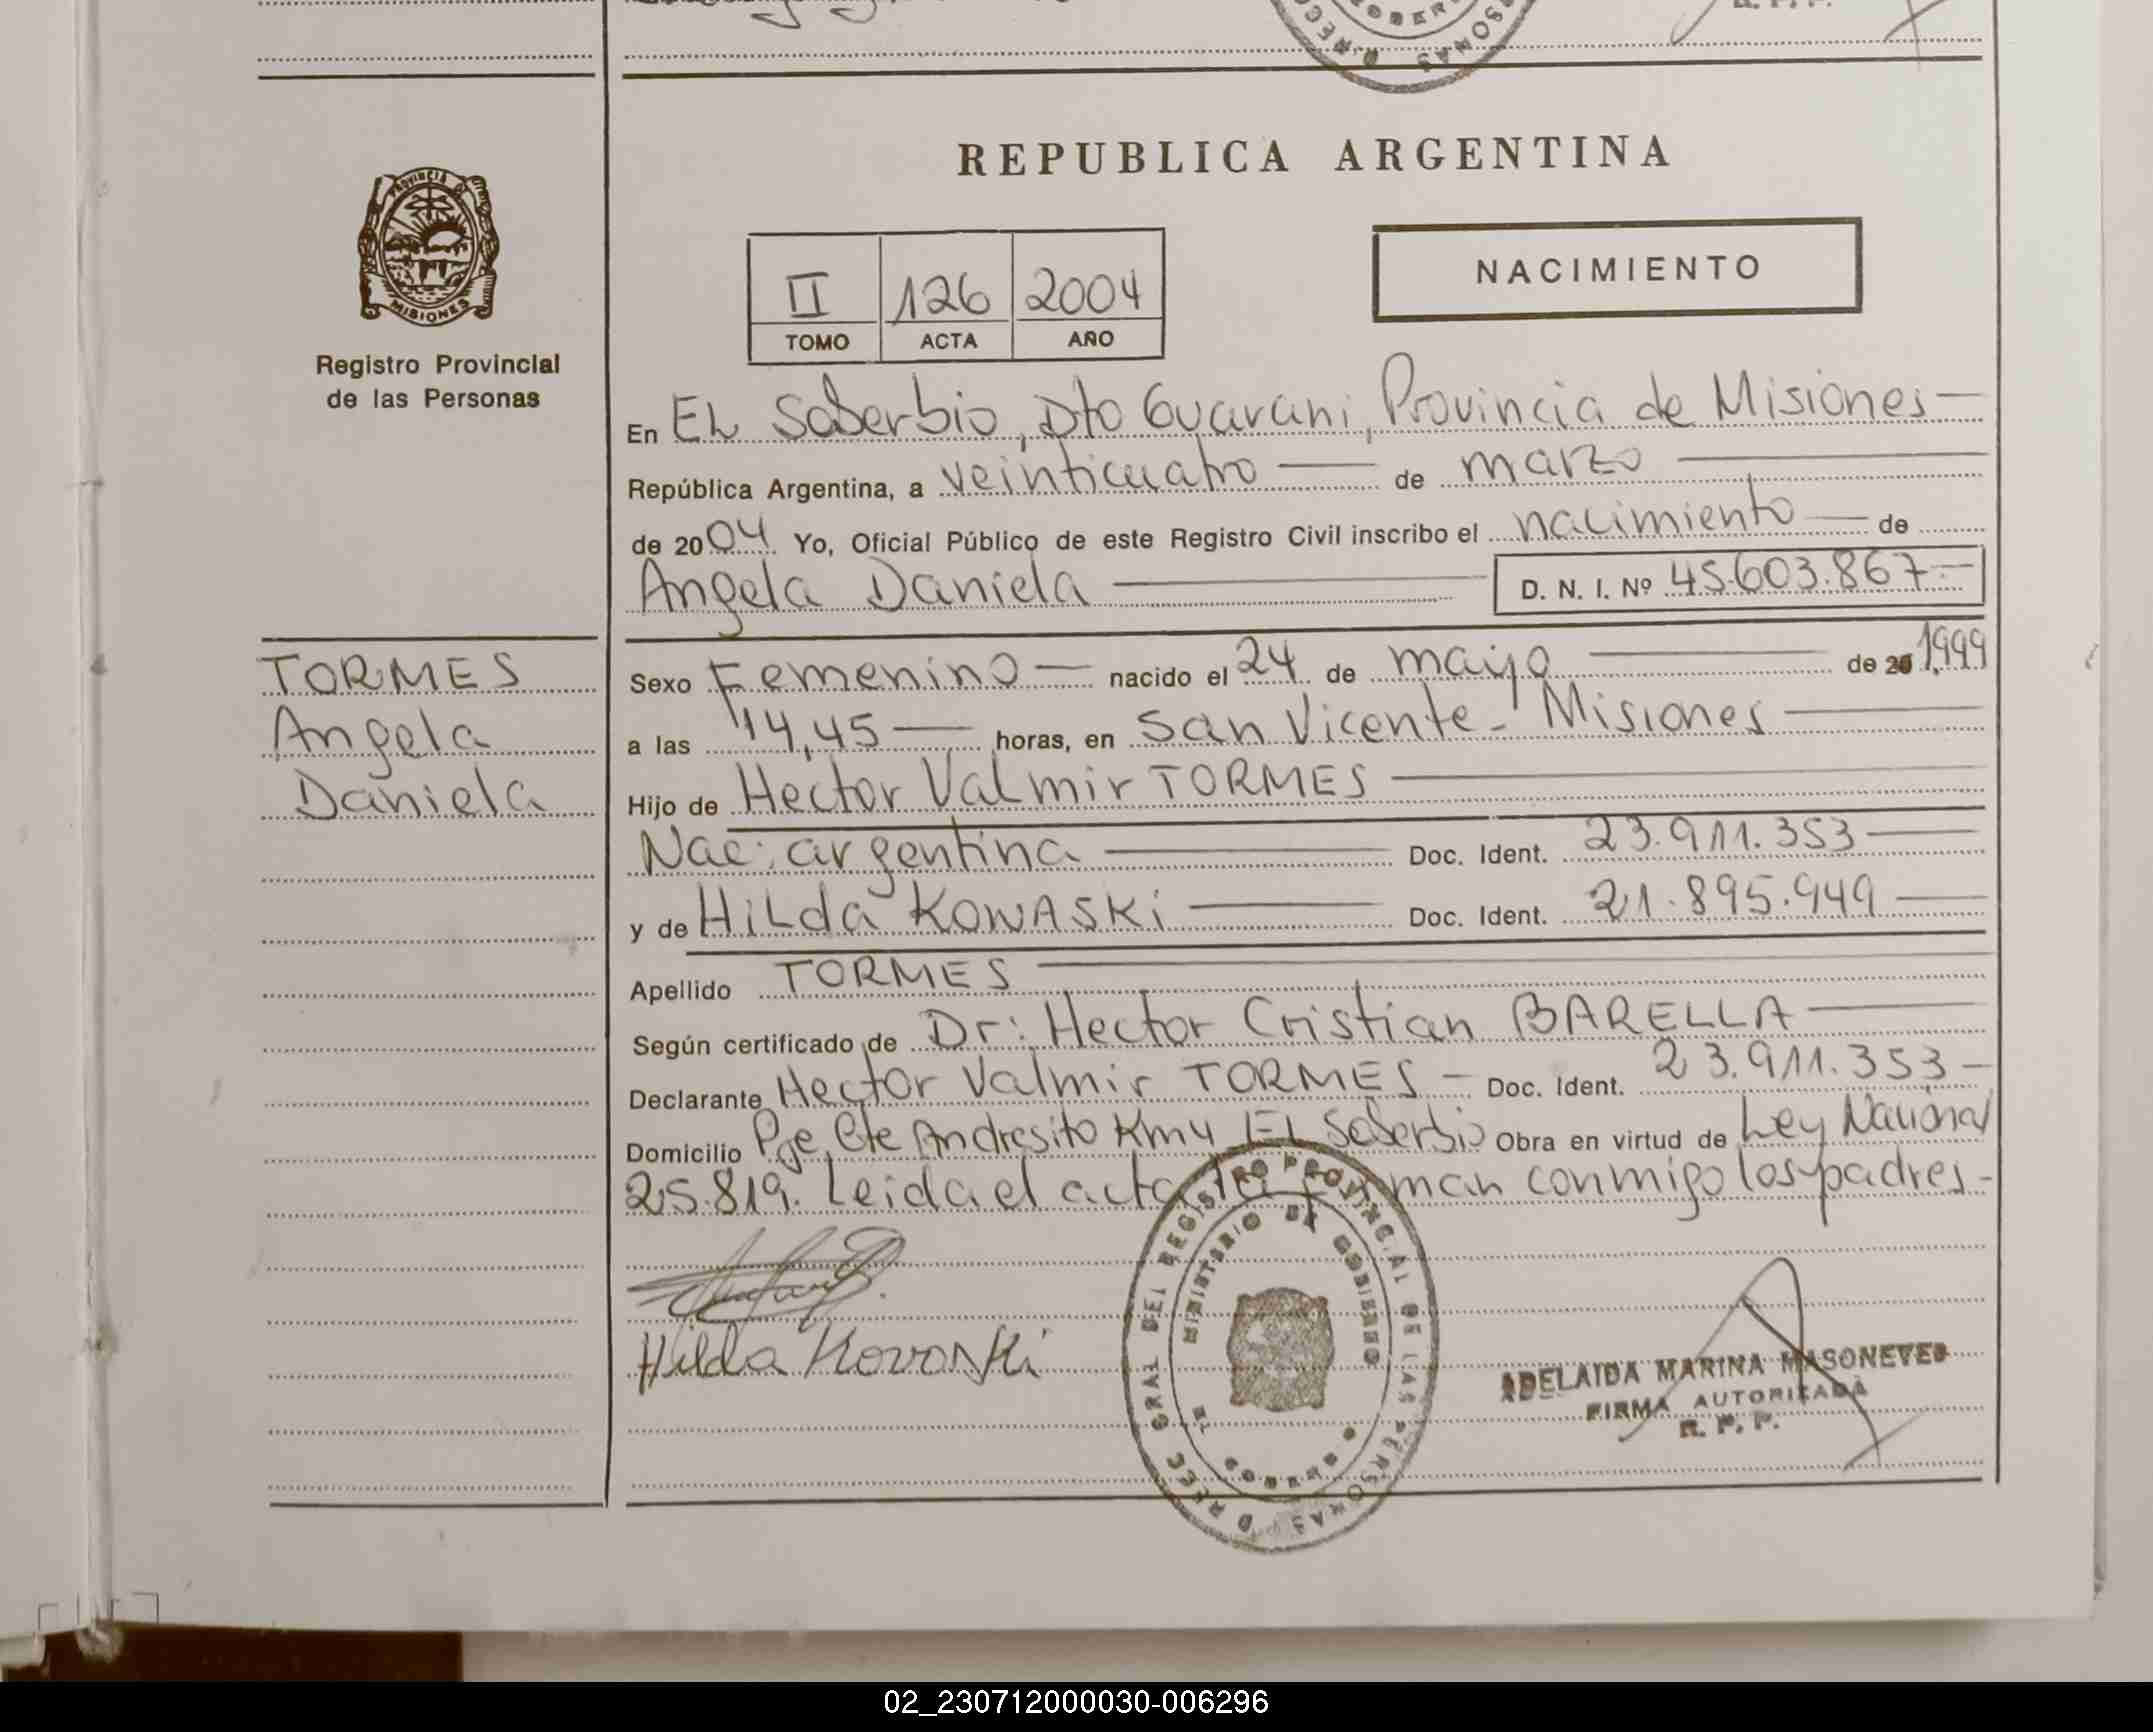 REPUBLICA ARGENTINA
PROVINCIA DE MISIONES
Registro Provincial
de las Personas
II 126 2004
TOMO ACTA AÑO
NACIMIENTO
En EL Soberbio, Dto Guarani, Provincia de Misiones
República Argentina, a veinticuatro de marzo
de 2004 Yo, Oficial Público de este Registro Civil inscribo el nacimiento de
Angela Daniela D. N. I. Nº 45.603.867
TORMES
Angela
Daniela
Sexo Femenino nacido el 24 de mayo de 20 1999
a las 14,45 horas, en San Vicente - Misiones
Hijo de Hector Valmir TORMES
Nac: argentina Doc. Ident. 23.911.353
y de HiLda KOWASKi Doc. Ident. 21.895.949
Apellido TORMES
Según certificado de Dr: Hector Cristian BARELLA
Declarante Hector Valmir TORMES - Doc. Ident. 23.911.353
Domicilio Pje Cte Andresito Km4 EL Soberbio Obra en virtud de Ley Nacional
25.819. Leida el acta la firman conmigo los padres-
Hilda Kovaski
DIREC. GRAL DEL REGISTRO PROVINCIAL DE LAS PERSONAS
MINISTERIO DE GOBIERNO
ADELAIDA MARINA MASONEVES
FIRMA AUTORIZADA
R. P. P.
02_230712000030-006296